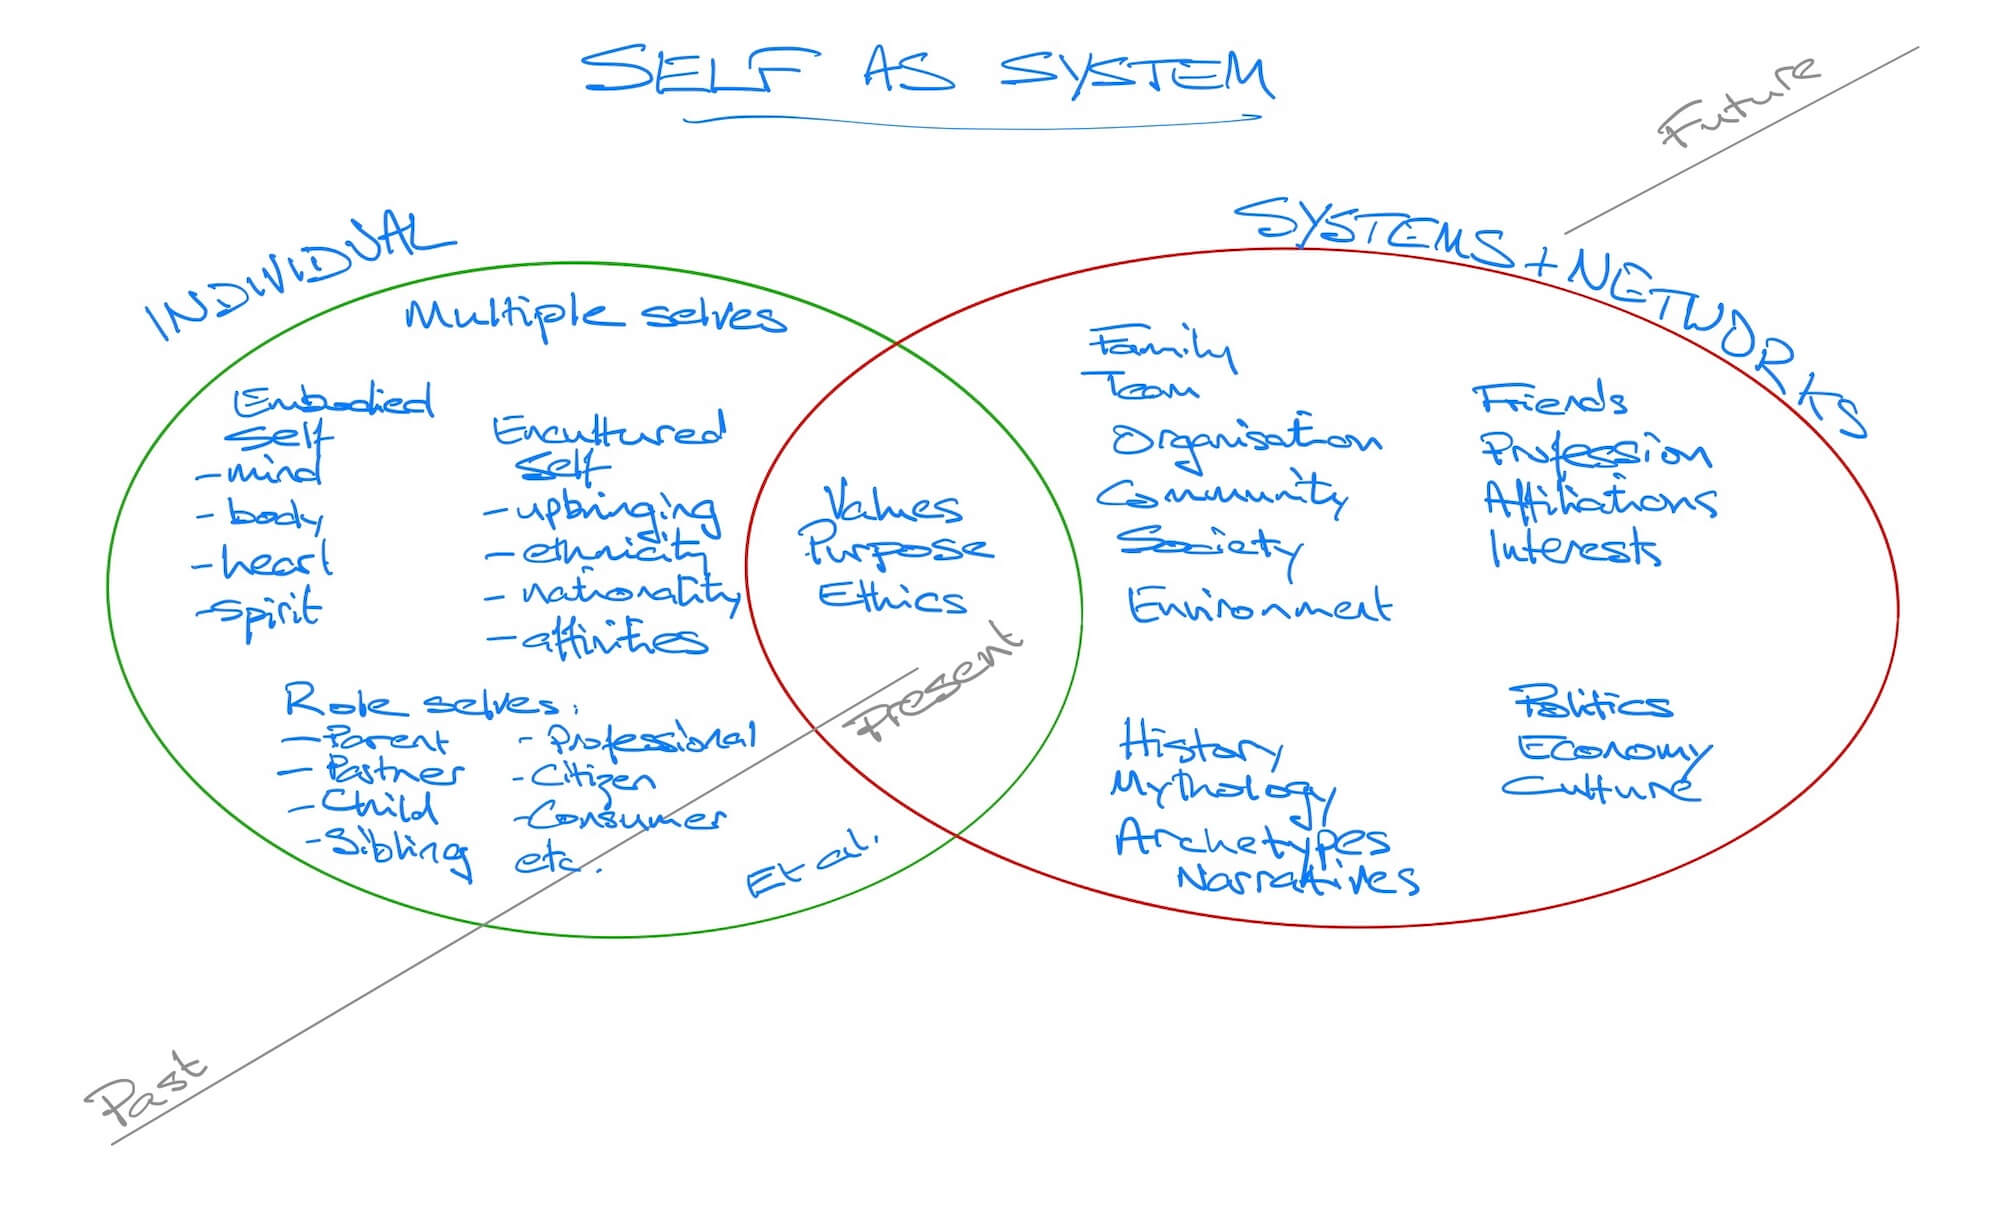 SELF AS SYSTEM
Future
INDIVIDUAL
SYSTEMS + NETWORKS
Multiple selves
Embodied
Self
- mind
- body
- heart
- Spirit
Encultured
Self
- upbringing
- ethnicity
- nationality
- affinities
Role selves:
- Parent
- Partner
- Child
- Sibling
- Professional
- Citizen
- Consumer
etc.
Et al.
Values
Purpose
Ethics
Present
Family
Team
Organisation
Community
Society
Environment
Friends
Profession
Affiliations
Interests
History
Mythology
Archetypes
Narratives
Politics
Economy
Culture
Past